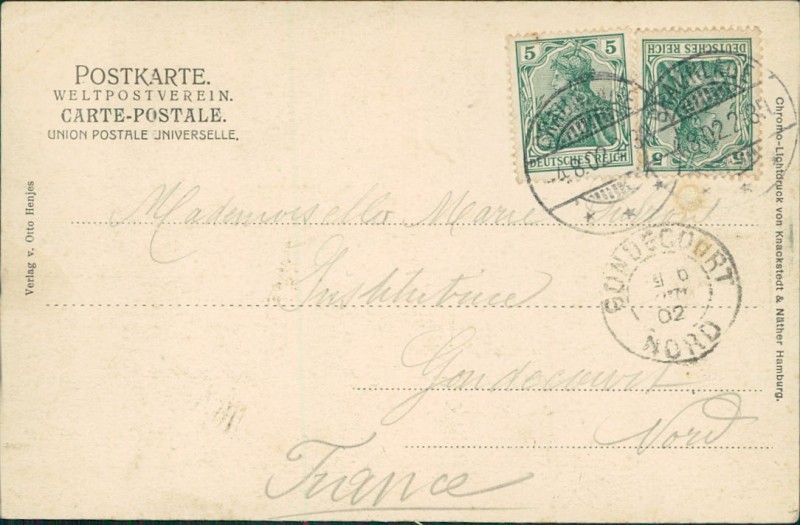 POSTKARTE.
WELTPOSTVEREIN.
CARTE-POSTALE.
UNION POSTALE UNIVERSELLE.
5 5
DEUTSCHES REICH
DEUTSCHES REICH
5 5
4.8.02
4.8.02.2
Verlag v. Otto Henjes
Mademoiselle Marie
Institutrice
Gondecourt
Nord
France
GONDECOURT
02
NORD
Chromo-Lichtdruck von Knackstedt & Näther Hamburg.